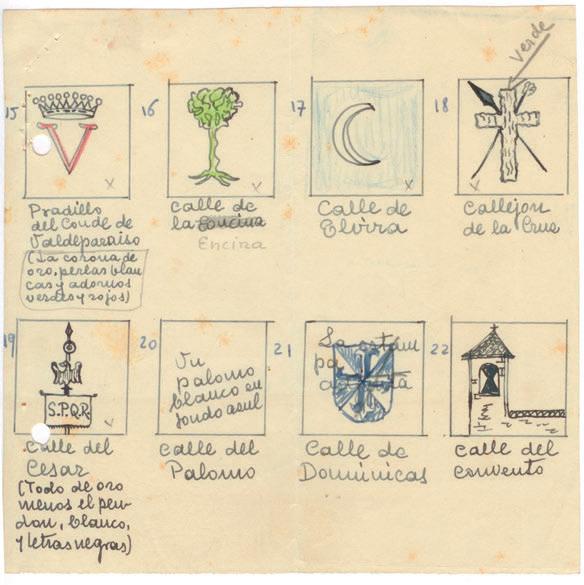 Verde
15
V
Pradillo
del Conde de
Valdeparaiso
(La corona de
oro, perlas blan
cas y adornos
verdes y rojos)
16
Calle de
la Encina
Encina
17
Calle de
Elvira
18
Callejon
de la Cruz
19
S.P.Q.R
Calle del
Cesar
(Todo de oro
menos el pen-
don, blanco,
y letras negras)
20
Un
palomo
blanco en
fondo azul
Calle del
Palomo
21
La estam
pa
Calle de
Dominicas
22
Calle del
convento